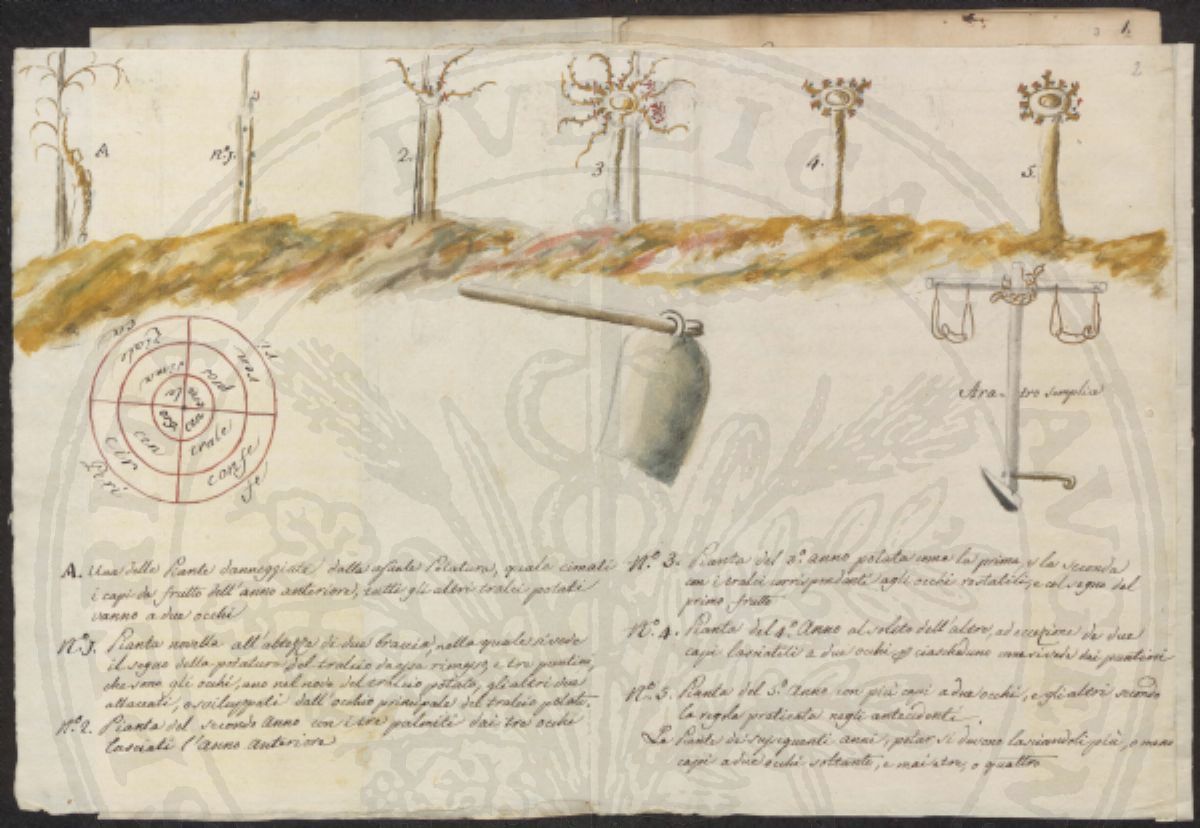 2
A
N.º 1.
2.
3
4.
5.
Aratro semplice
A. Una delle Piante danneggiate dalla assuale Potatura, quale cimati
i capi da frutto dell'anno anteriore, tutti gli altri tralci potati
vanno a due occhi
N.º 1. Pianta novella all'altezza di due braccia, nella quale si vede
il segno della potatura del tralcio da essa rimesso, e tre puntini,
che sono gli occhi, uno nel nodo del tralcio potato, gli altri due
attaccati, o sviluppati dall'occhio principale del tralcio potato.
N.º 2. Pianta del secondo Anno con i tre palmiti dai tre occhi
lasciati l'Anno Anteriore
N.º 3. Pianta del 3.º anno potata come la prima, e la seconda
con i tralci corrispondenti agli occhi, e col segno del
primo frutto
N.º 4. Pianta del 4.º Anno al solito dell'altre, ad eccezione de due
capi lasciateli a due occhi ciascheduno come si vede dai puntioni
N.º 5. Pianta del 5.º Anno con più capi a due occhi, e gli altri secondo
la regola praticata negli antecedenti.
Le Piante de susseguenti anni, potar si devono lasciandoli più, o meno
capi a due occhi soltanto, e mai a tre, o quattro